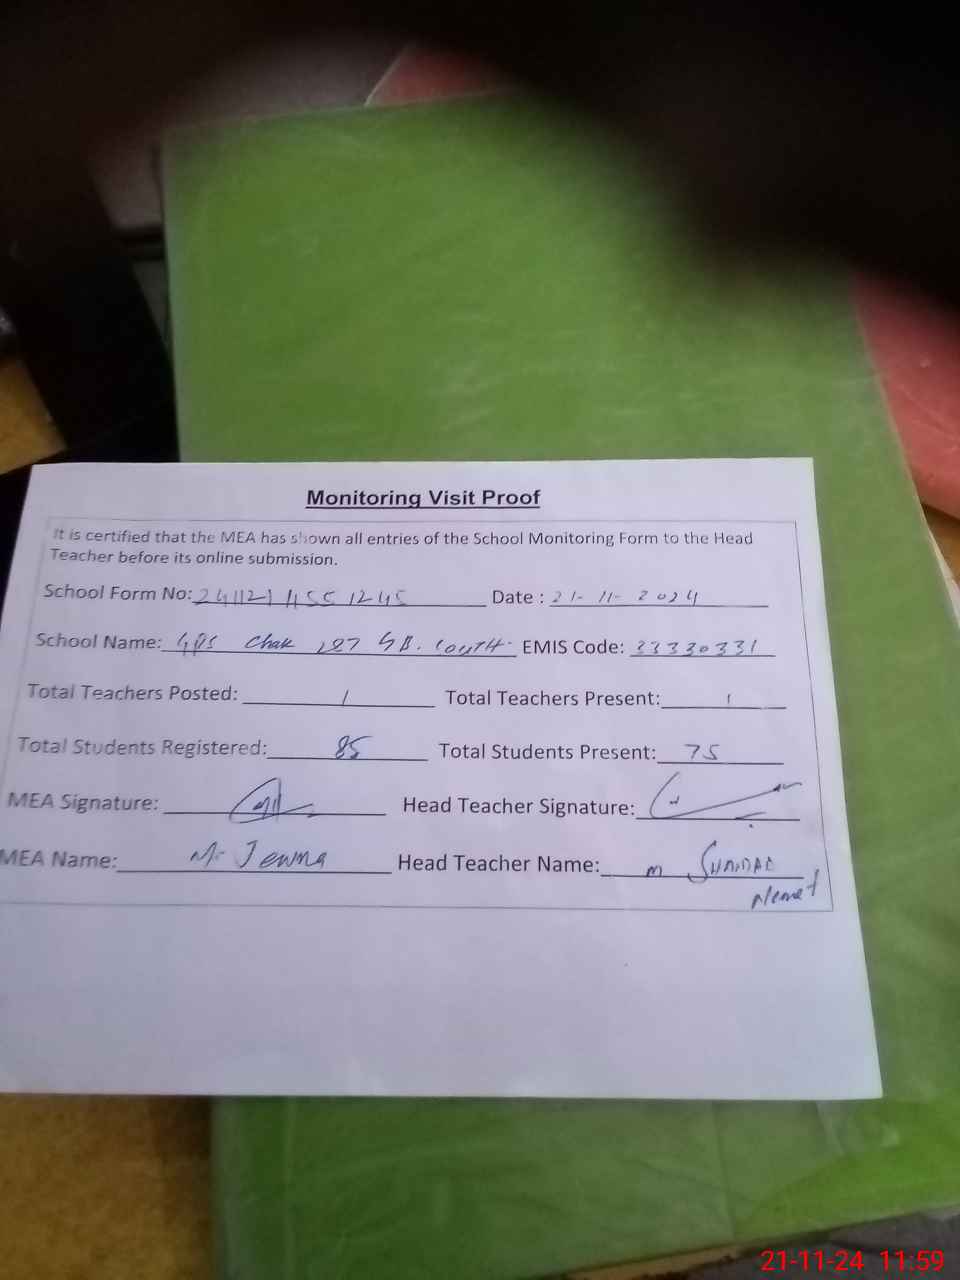 Monitoring Visit Proof
It is certified that the MEA has shown all entries of the School Monitoring Form to the Head
Teacher before its online submission.
School Form No: Date : 21-11-2024
School Name: GPS Chak 187 GB. South EMIS Code: 33330331
Total Teachers Posted: 1 Total Teachers Present: 1
Total Students Registered: 85 Total Students Present: 75
MEA Signature: Head Teacher Signature:
MEA Name: M. Head Teacher Name: m
21-11-24 11:59